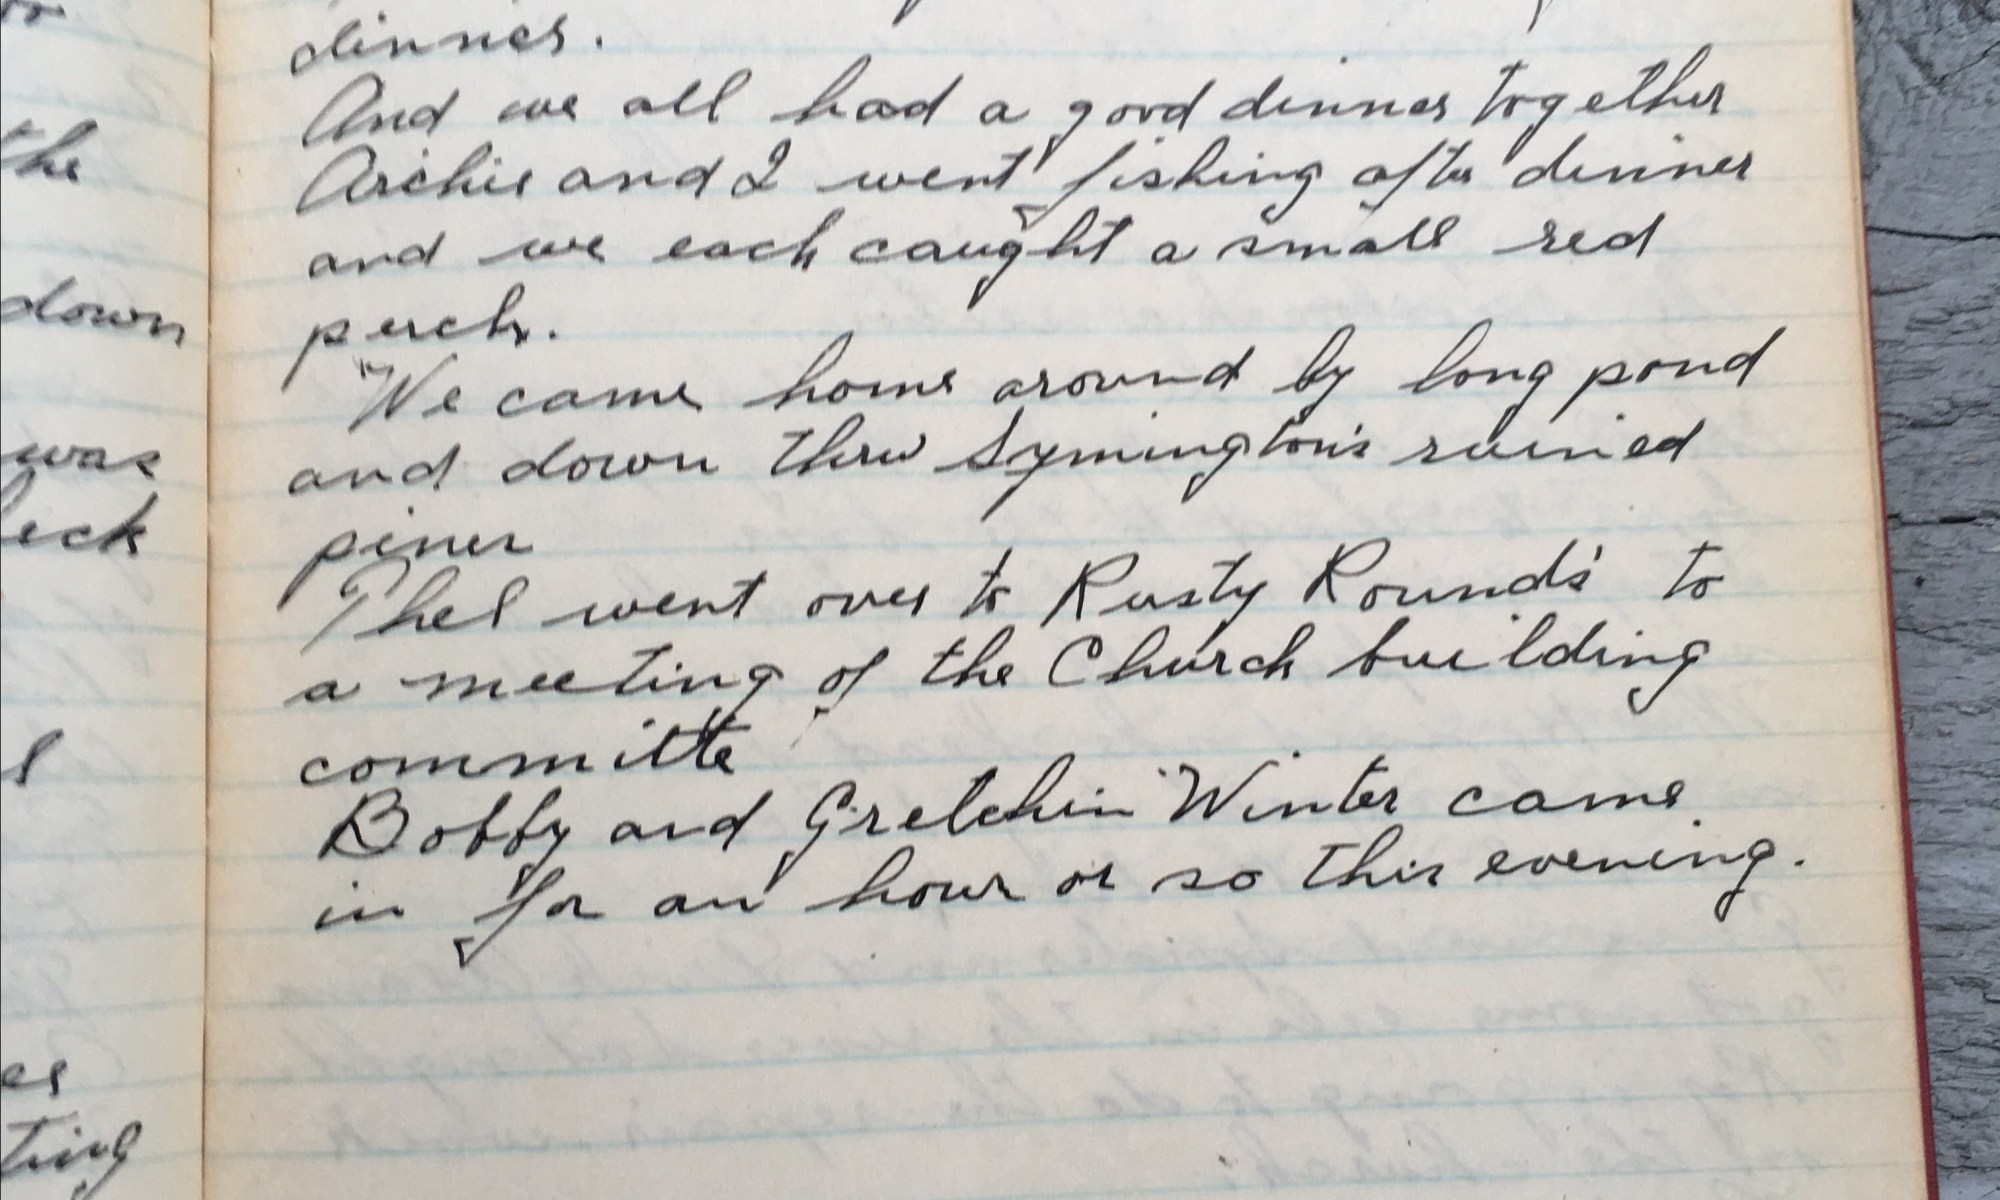 the
down
was
eck
l
es
ting
dinner.
And we all had a good dinner together
Archie and I went fishing after dinner
and we each caught a small red
perch.
We came home around by long pond
and down thru Symington's ruined
piner
Thel went over to Rusty Round's to
a meeting of the Church building
committe
Bobby and Gretchin Winter came
in for an hour or so this evening.